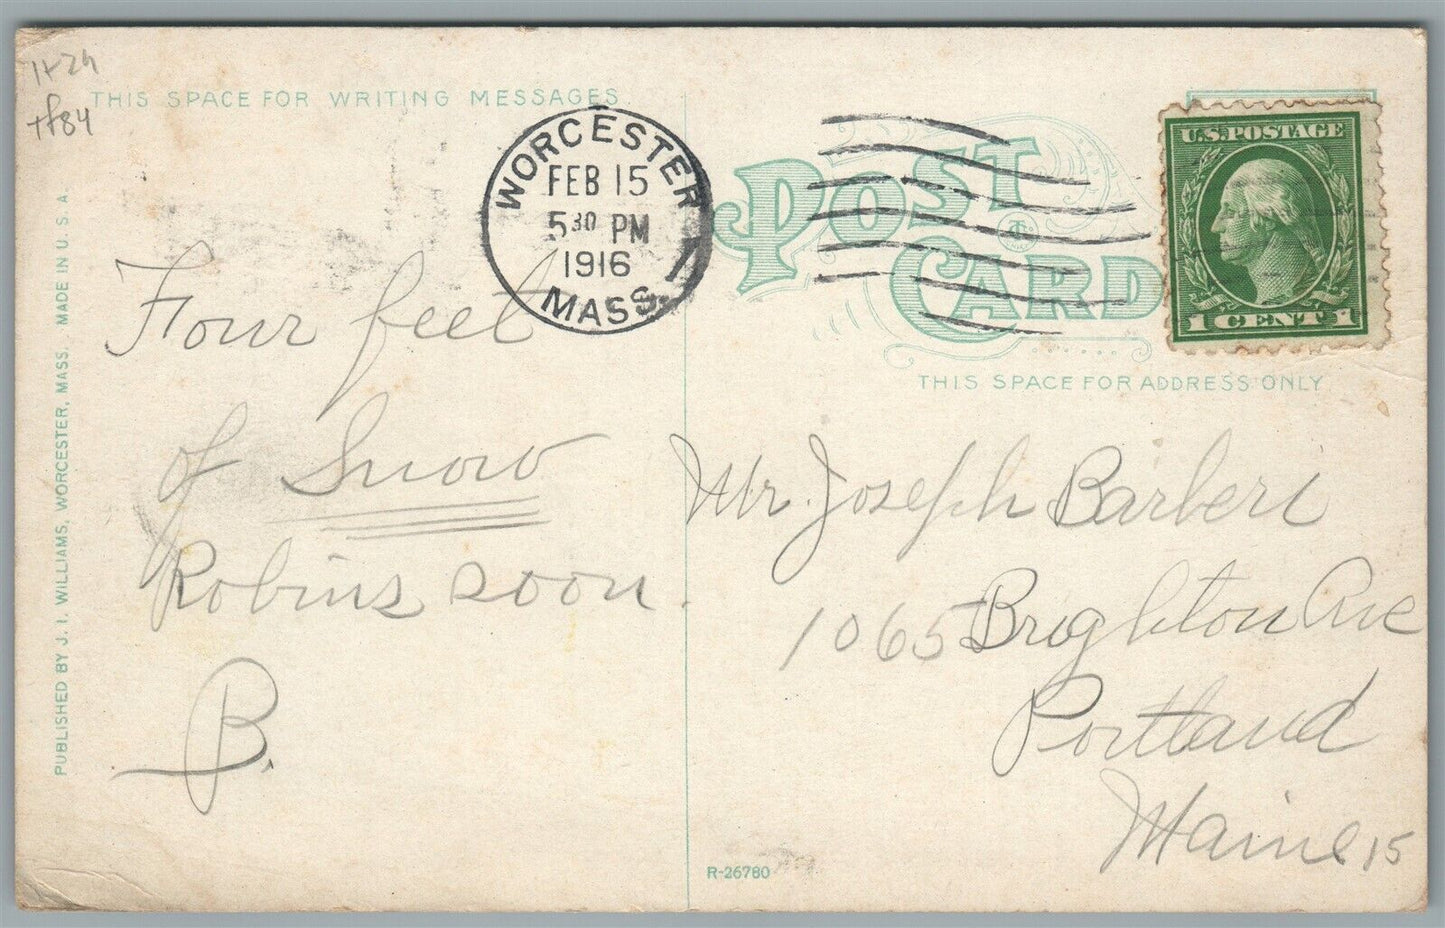 1+29
THIS SPACE FOR WRITING MESSAGES
PUBLISHED BY J. I. WILLIAMS, WORCESTER, MASS. MADE IN U. S. A.
WORCESTER
FEB 15
5 30 PM
1916
MASS.
Four feet
of Snow
Robins soon.
B.
POST CARD
U.S. POSTAGE
1 CENT 1
THIS SPACE FOR ADDRESS ONLY
Mr. Joseph Barberi
1065 Brighton Ave
Portland
Maine 15
R-26780